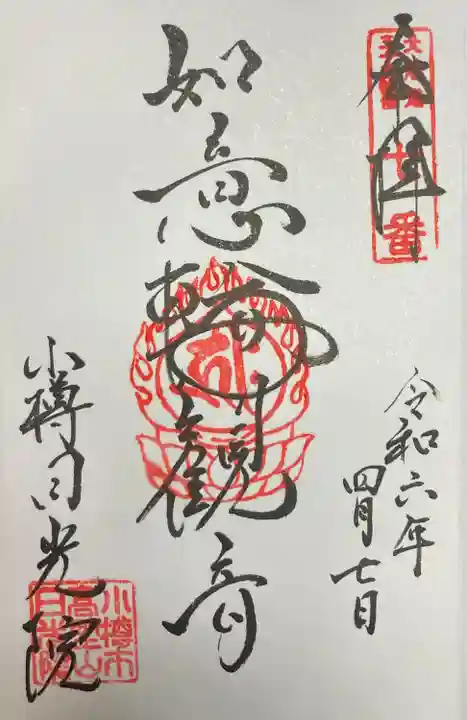 奉拝
令和六年
四月七日
如意輪観音
小樽日光院
小樽市
高野山
日光院